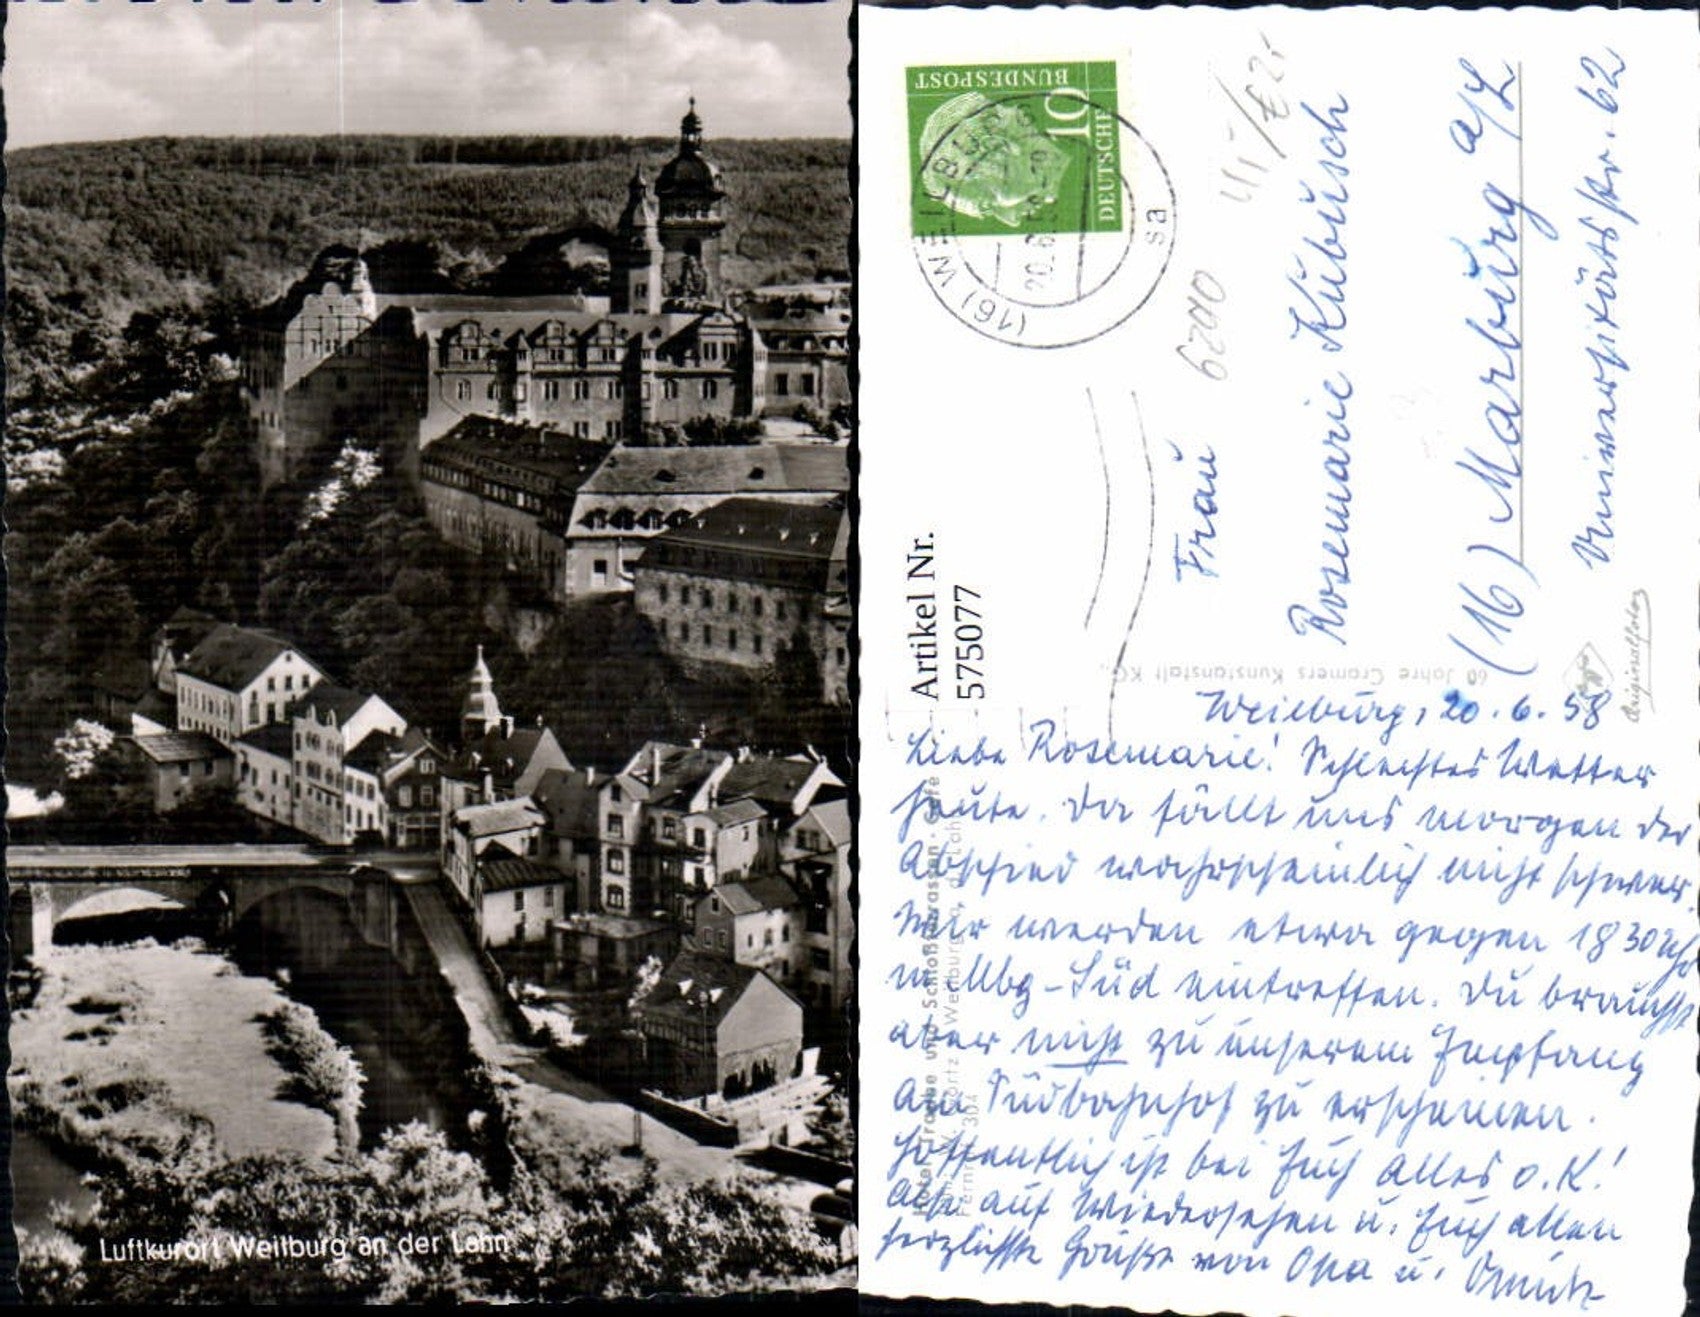 Luftkurort Weilburg an der Lahn
DEUTSCHE
BUNDESPOST
10
(16) WEILBURG
20.6.58
sa
6290
Artikel Nr.
575077
Frau
Rosemarie Kübüsch
(16) Marburg a/L
Universitätsstr. 62
60 Jahre Cramers Kunstanstalt KG.,
Originalfoto
Hotel Traube und Schloßterrassen - Cafe
Weilburg a. d. Lahn
Fernruf 304
Weilburg, 20.6.58
Liebe Rosemarie! Schlechtes Wetter
heute. Da fällt uns morgen der
Abschied wahrscheinlich nicht schwer.
Wir werden etwa gegen 18 30 Uhr
in Mbg-Süd eintreffen. Du brauchst
aber nicht zu unserem Empfang
am Südbahnhof zu erscheinen.
Hoffentlich ist bei Euch alles o.K!
Also auf Wiedersehen u. Euch allen
herzlichste Grüße von Opa u.